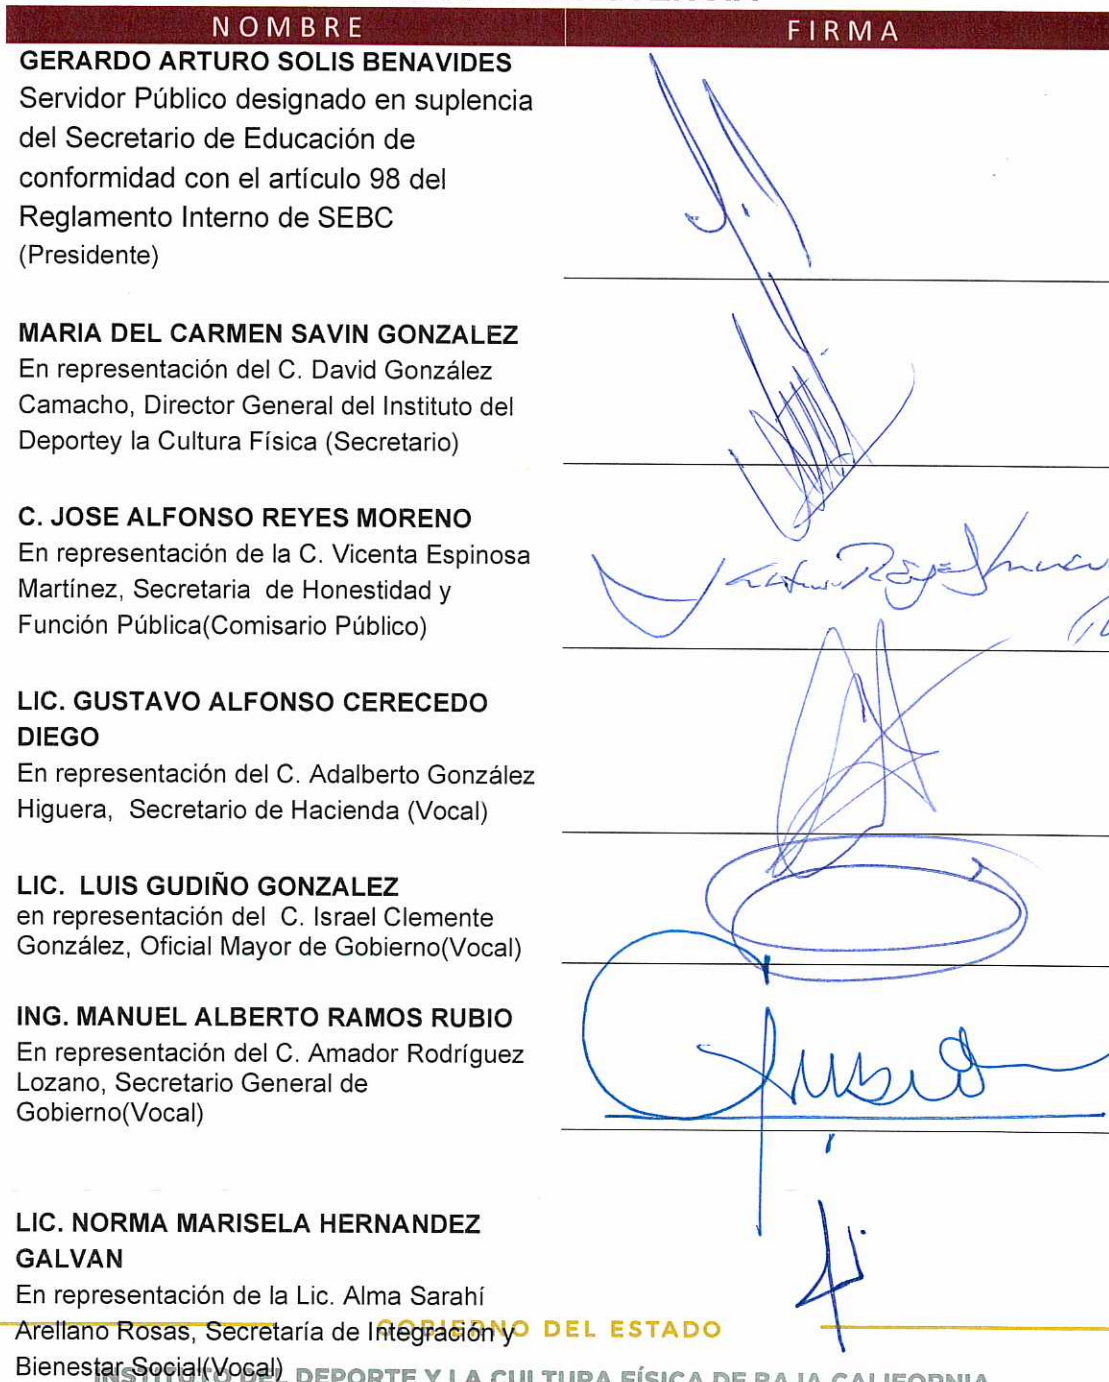 NOMBRE FIRMA
GERARDO ARTURO SOLIS BENAVIDES
Servidor Público designado en suplencia
del Secretario de Educación de
conformidad con el artículo 98 del
Reglamento Interno de SEBC
(Presidente)
MARIA DEL CARMEN SAVIN GONZALEZ
En representación del C. David González
Camacho, Director General del Instituto del
Deportey la Cultura Física (Secretario)
C. JOSE ALFONSO REYES MORENO
En representación de la C. Vicenta Espinosa
Martínez, Secretaria de Honestidad y
Función Pública(Comisario Público)
LIC. GUSTAVO ALFONSO CERECEDO
DIEGO
En representación del C. Adalberto González
Higuera, Secretario de Hacienda (Vocal)
LIC. LUIS GUDIÑO GONZALEZ
en representación del C. Israel Clemente
González, Oficial Mayor de Gobierno(Vocal)
ING. MANUEL ALBERTO RAMOS RUBIO
En representación del C. Amador Rodríguez
Lozano, Secretario General de
Gobierno(Vocal)
LIC. NORMA MARISELA HERNANDEZ
GALVAN
En representación de la Lic. Alma Sarahí
Arellano Rosas, Secretaría de Integración y
Bienestar Social(Vocal)
GOBIERNO DEL ESTADO
INSTITUTO DEL DEPORTE Y LA CULTURA FÍSICA DE BAJA CALIFORNIA